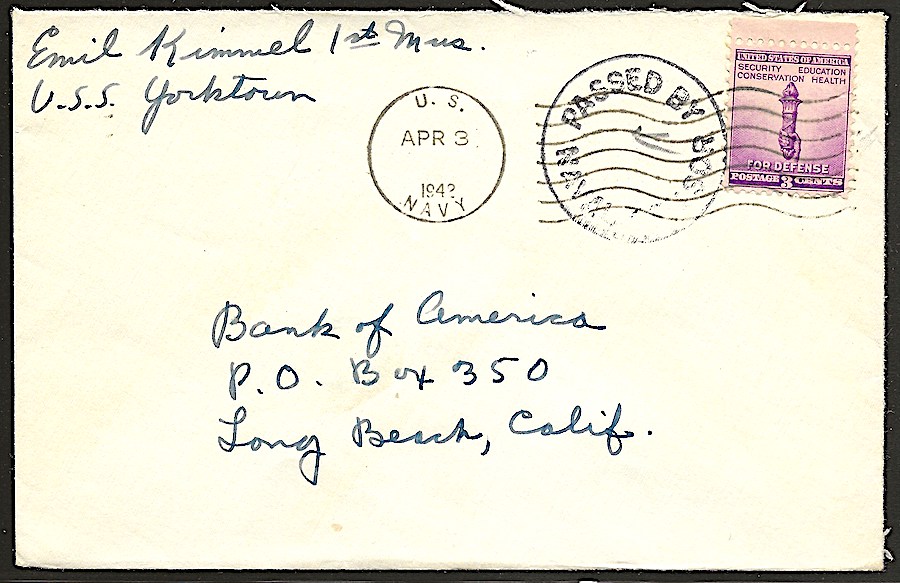 Emil Kimmel 1st Mus.
U.S.S. Yorktown
U. S.
APR 3
NAVY
PASSED BY
UNITED STATES OF AMERICA
SECURITY EDUCATION
CONSERVATION HEALTH
FOR DEFENSE
POSTAGE 3 CENTS
Bank of America
P.O. Box 350
Long Beach, Calif.